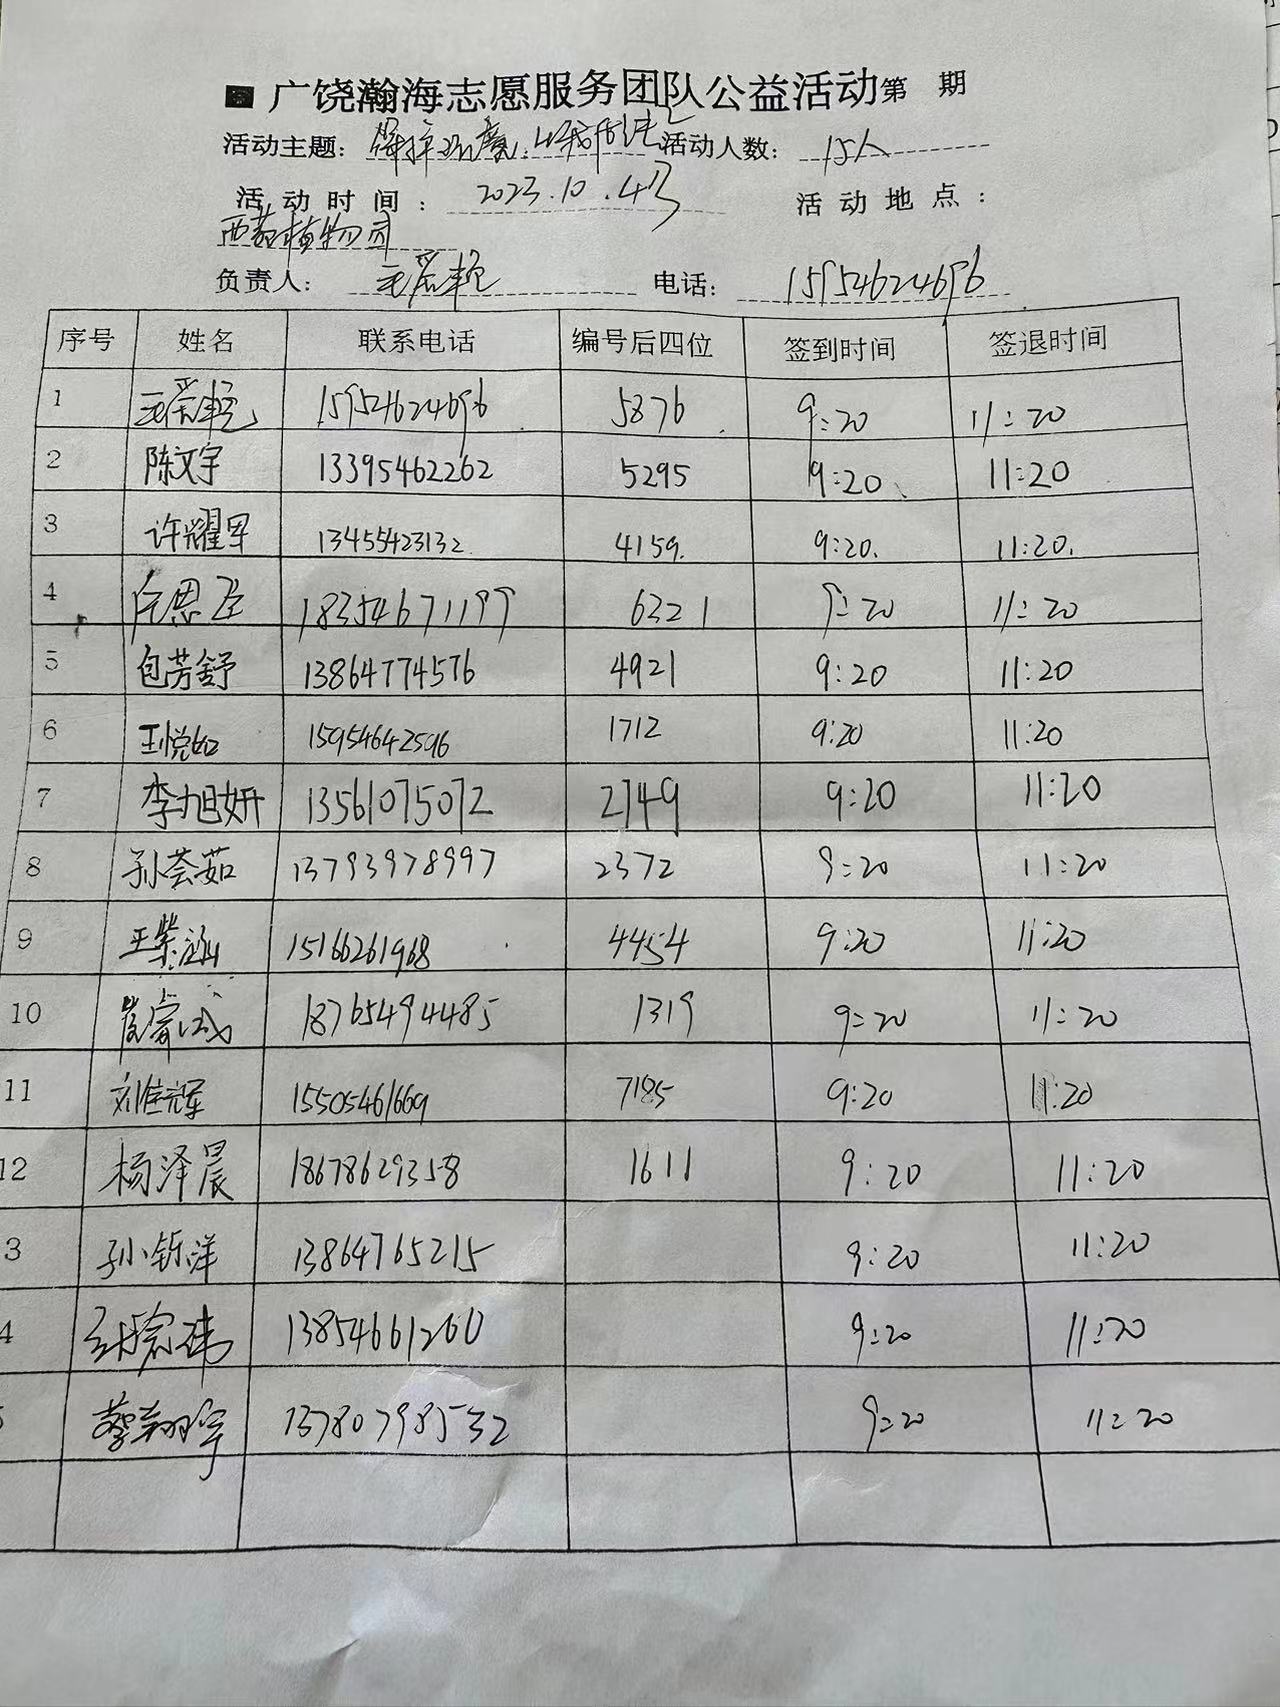 广饶瀚海志愿服务团队公益活动第 期
活动主题: 保护环境,从我做起 活动人数: 15人
活动时间: 2023.10.4号 活动地点:
西苑植物园
负责人: 电话: 15954624696
序号 姓名 联系电话 编号后四位 签到时间 签退时间
1 15954624696 5876 9:20 11:20
2 陈文宇 13395462262 5295 9:20 11:20
3 许耀军 13455423132 4159 9:20. 11:20.
4 18354671199 6321 9:20 11:20
5 包芳舒 13864774576 4921 9:20 11:20
6 王悦如 15954642596 1712 9:20 11:20
7 李旭妍 13561075072 2749 9:20 11:20
8 孙荟茹 13793978997 2372 9:20 11:20
9 王紫涵 15166261968 4454 9:20 11:20
10 崔睿诚 18765494485 1319 9:20 11:20
11 刘佳辉 15505461669 7185 9:20 11:20
12 杨泽晨 18678629358 1611 9:20 11:20
3 孙小铄洋 13864765215 9:20 11:20
4 13854661260 9:20 11:20
蔡翔宇 13780798532 9:20 11:20